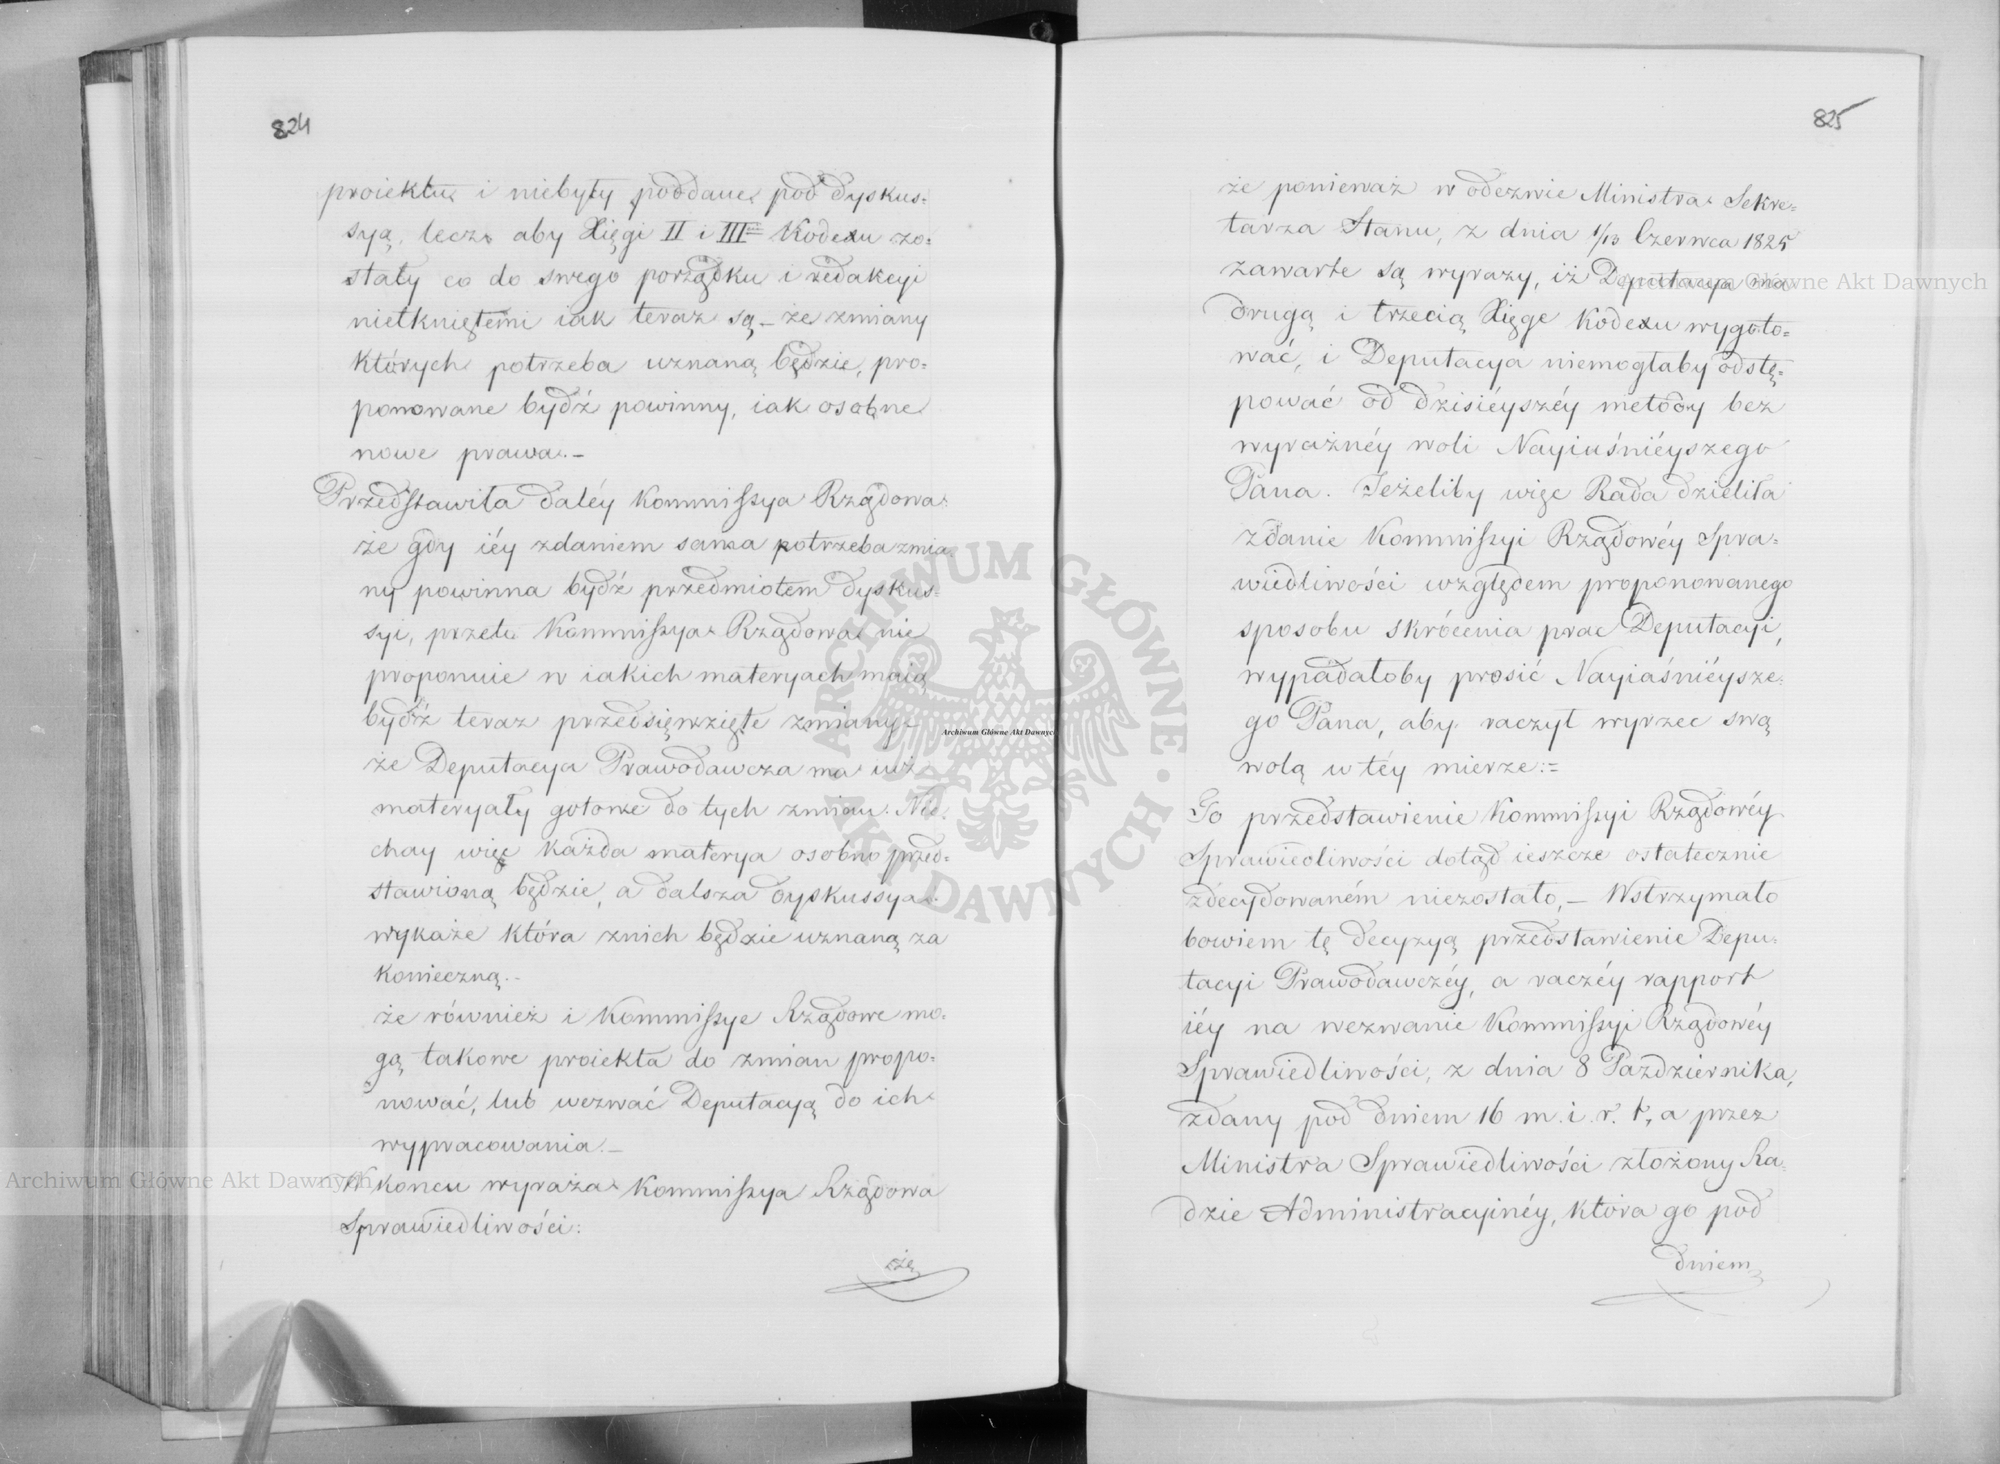 824
proiektu i niebyły poddane pod dyskus=
syą, lecz aby Xięgi II i III Kodexu zo=
stały co do swego porządku i redakcyi
nietkniętemi iak teraz są – że zmiany
których potrzeba uznaną będzie, pro=
ponowane bydź powinny, iak osobne
nowe prawa. –
Przedstawiła daléy Kommissya Rządowa
że gdy iéy zdaniem sama potrzeba zmia
ny powinna bydź przedmiotem dyskus=
syi, przeto Kommissya Rządowa nie
proponuie w iakich materyach maią
bydź teraz przedsięwzięte zmiany
że Deputacya Prawodawcza ma iuż
materyały gotowe do tych zmian. Nie=
chay więc każda materya osobno przed=
stawioną będzie, a dalsza dyskussya
wykaże która z nich będzie uznaną za
konieczną. –
że również i Kommissye Rządowe mo=
gą takowe proiekta do zmian propo=
nować, lub wezwać Deputacyą do ich
wypracowania. –
W końcu wyraża Kommissya Rządowa
Sprawiedliwości:
że
825
że ponieważ w odezwie Ministra Sekre=
tarza Stanu, z dnia 1/13 Czerwca 1825
zawarte są wyrazy, iż Deputacya ma
drugą i trzecią Xięgę Kodexu wygoto=
wać, i Deputacya niemogłaby odstę=
pować od dzisiéyszéy metody bez
wyraźnéy woli Nayiaśniéyszego
Pana. Jeżeliby więc Rada dzieliła
zdanie Kommissyi Rządowéy Spra=
wiedliwości względem proponowanego
sposobu skrócenia prac Deputacyi,
wypadałoby prosić Nayiaśniéysze=
go Pana, aby raczył wyrzec swą
wolą w téy mierze: =
To przedstawienie Kommissyi Rządowéy
Sprawiedliwości dotąd ieszcze ostatecznie
zdecydowaném niezostało, – Wstrzymało
bowiem tę decyzyą przedstawienie Depu=
tacyi Prawodawczéy, a raczéy rapport
iéy na wezwanie Kommissyi Rządowéy
Sprawiedliwości, z dnia 8 Października,
zdany pod dniem 16 m. i. r. t, a przez
Ministra Sprawiedliwości złożony Ra=
dzie Administracyinéy, która go pod
dniem
Archiwum Główne Akt Dawnych
Archiwum Główne Akt Dawnych
Archiwum Główne Akt Dawnych
ARCHIWUM GŁÓWNE AKT DAWNYCH